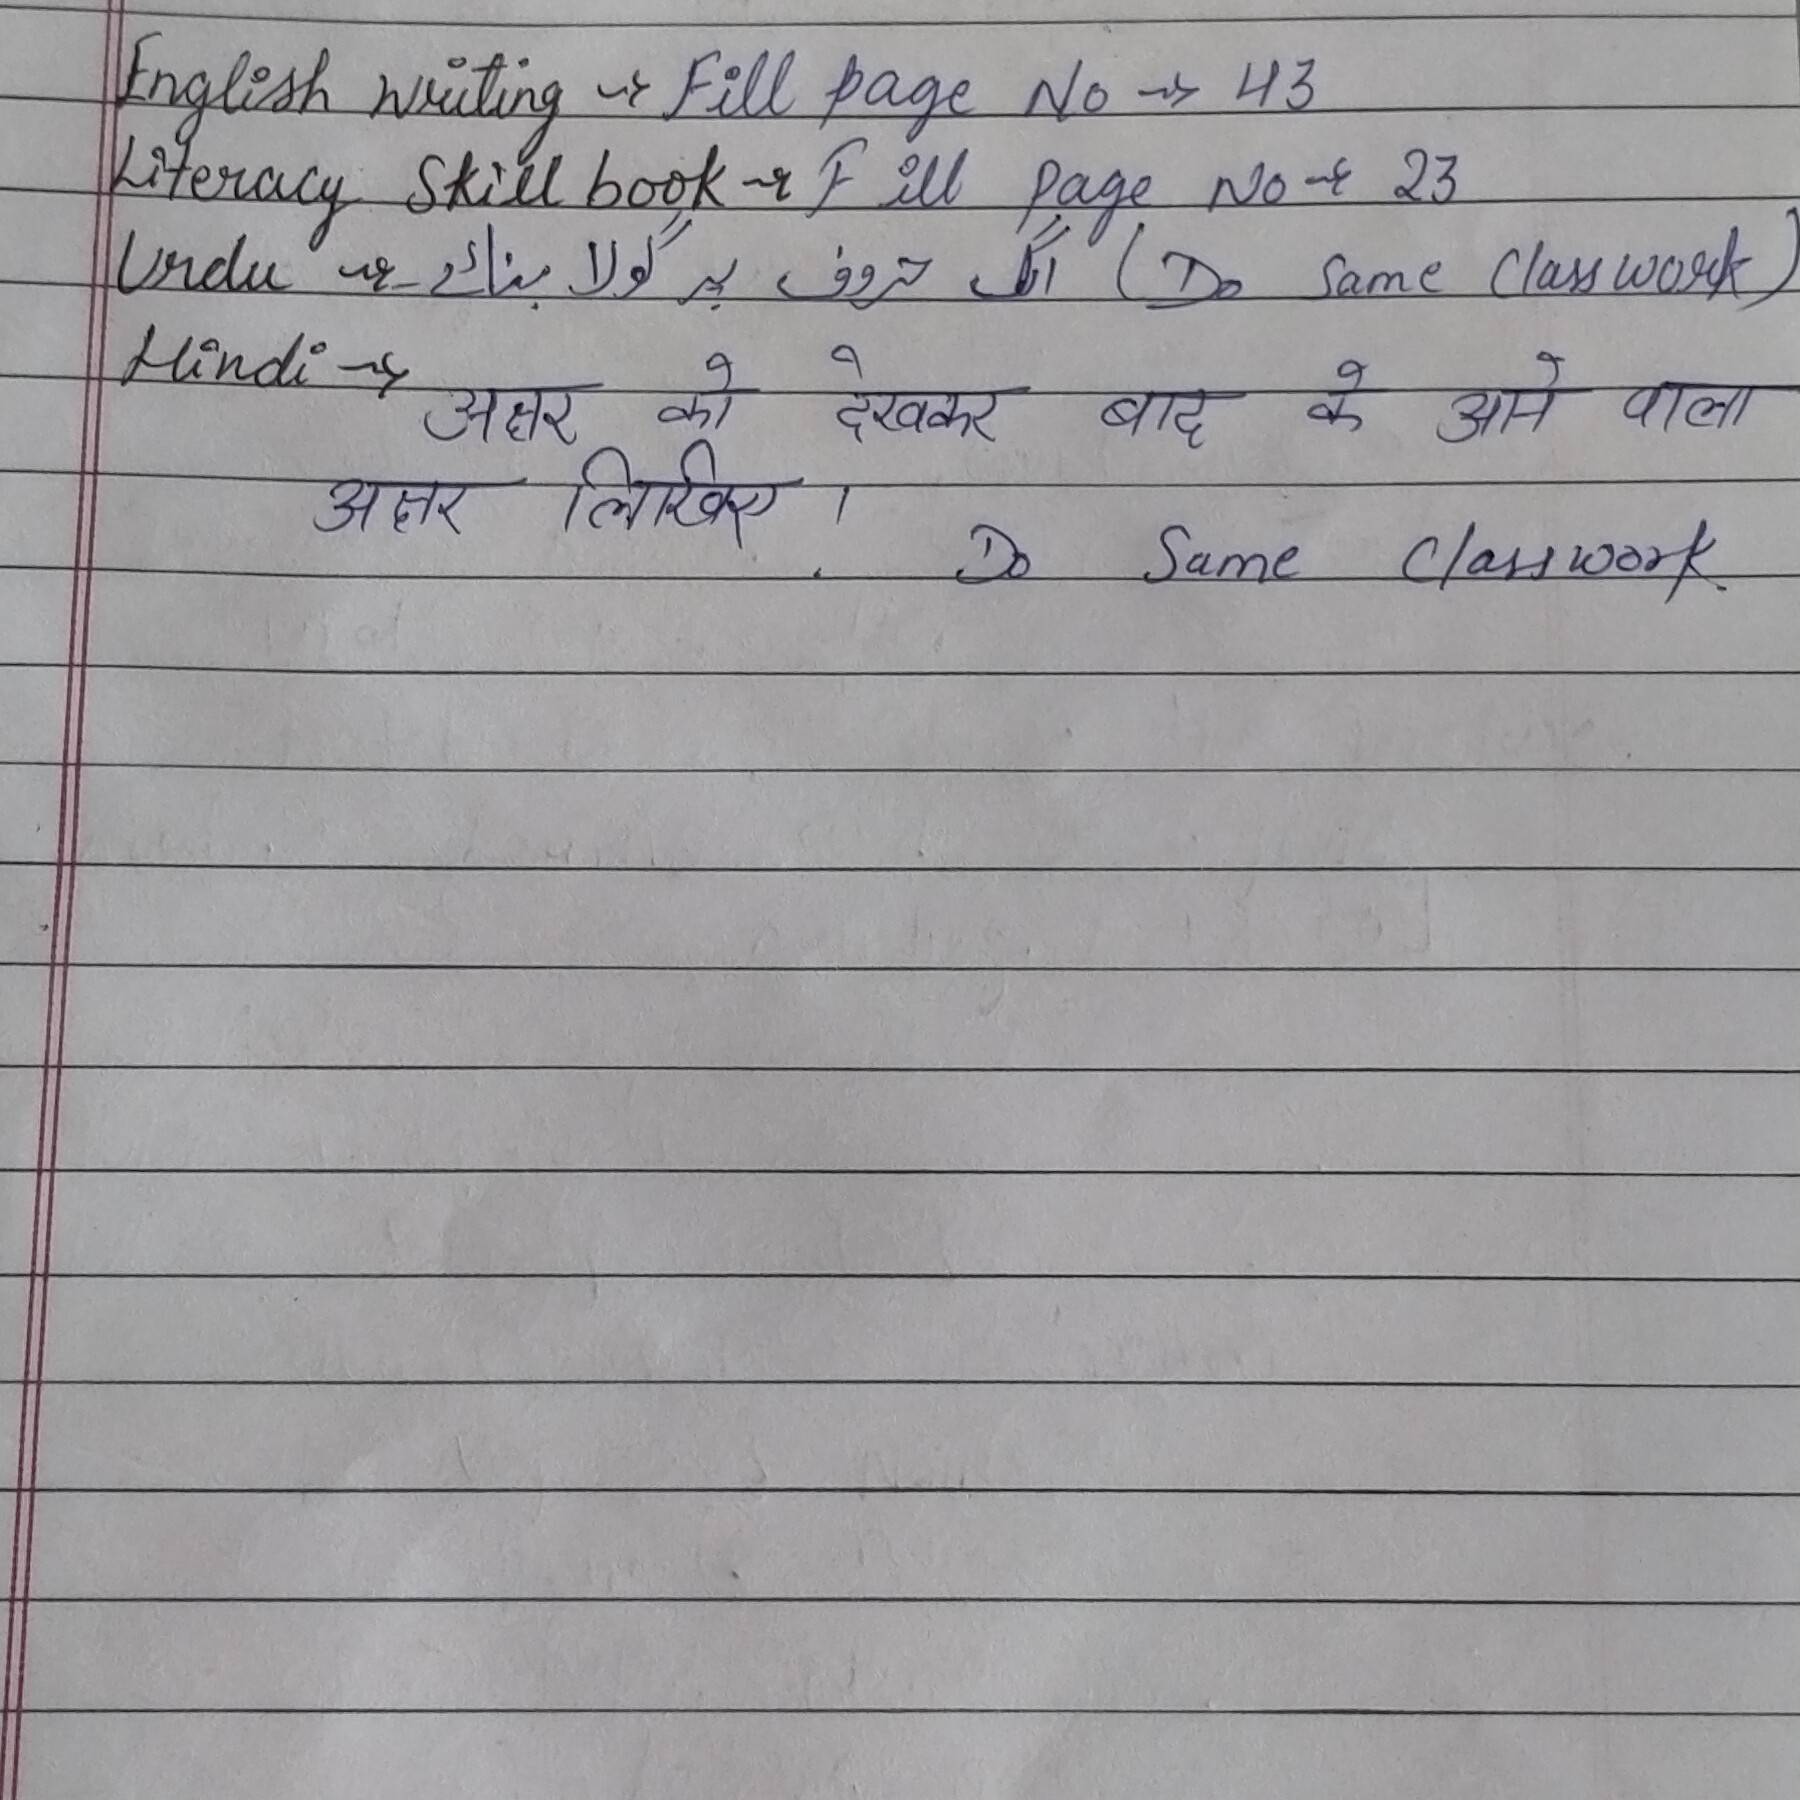 English writing → Fill page No → 43
Literacy Skill book → Fill page No → 23
Urdu → الگ حروف پر گولا بناؤ (Do Same Classwork)
Hindi → अक्षर को देखकर बाद के आने वाला
अक्षर लिखिए ।
Do Same Classwork